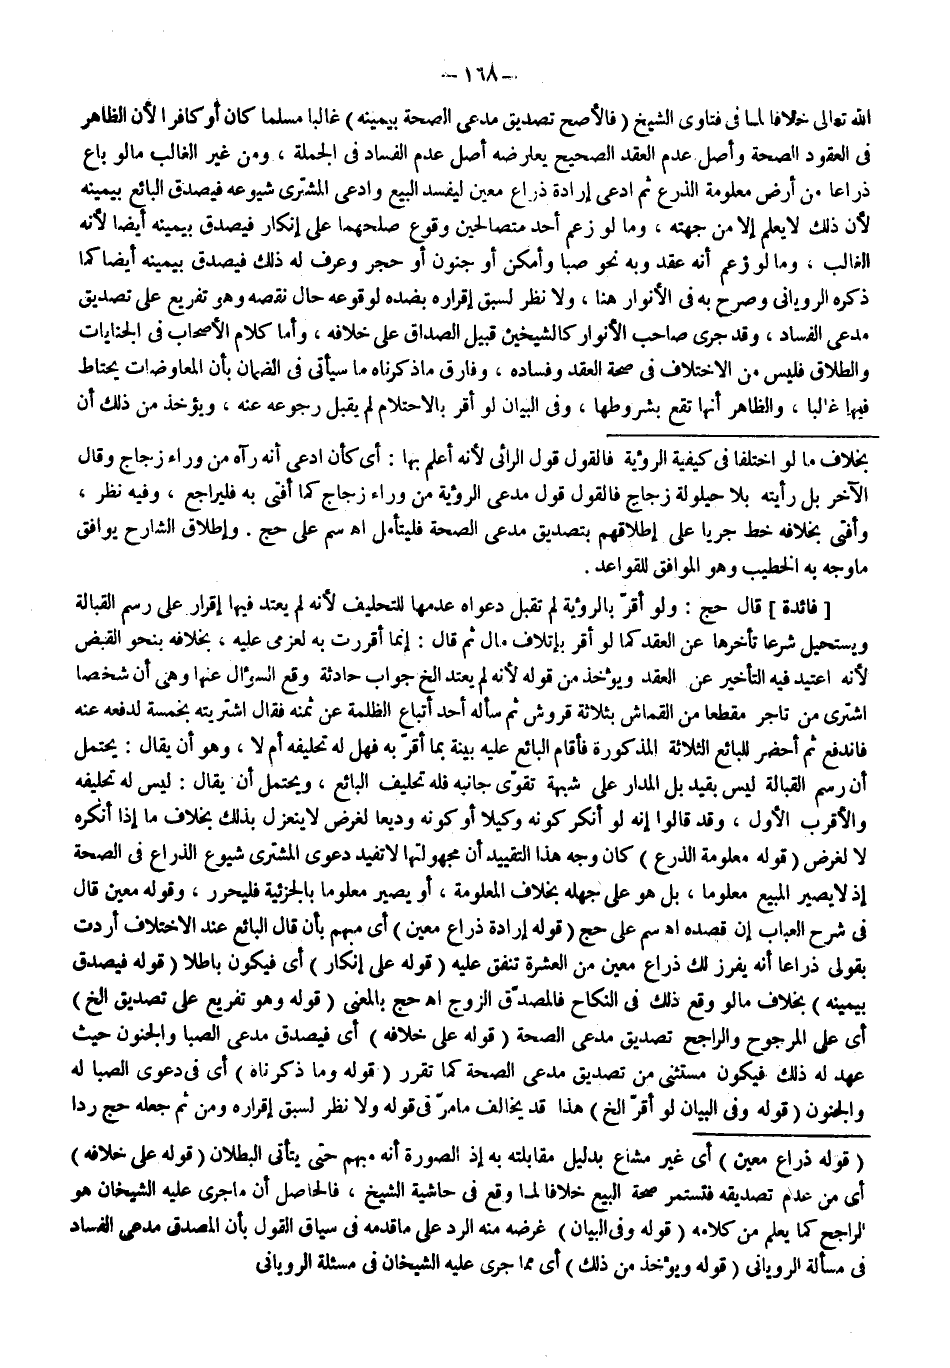 -- ١٦٨ --
الله تعالى خلافا لما فى فتاوى الشيخ ( فالأصح تصديق مدعى الصحة بيمينه ) غالبا مسلما كان أو كافرا لأن الظاهر
فى العقود الصحة وأصل عدم العقد الصحيح يعارضه أصل عدم الفساد فى الجملة ، ومن غير الغالب مالو باع
ذراعا من أرض معلومة الذرع ثم ادعى إرادة ذراع معين ليفسد البيع وادعى المشترى شيوعه فيصدق البائع بيمينه
لأن ذلك لايعلم إلا من جهته ، وما لو زعم أحد متصالحين وقوع صلحهما على إنكار فيصدق بيمينه أيضا لأنه
الغالب ، وما لو زعم أنه عقد وبه نحو صبا وأمكن أو جنون أو حجر وعرف له ذلك فيصدق بيمينه أيضا كما
ذكره الرويانى وصرح به فى الأنوار هنا ، ولا نظر لسبق إقراره بضده لوقوعه حال نقصه وهو تفريع على تصديق
مدعى الفساد ، وقد جرى صاحب الأنوار كالشيخين قبيل الصداق على خلافه ، وأما كلام الأصحاب فى الجنايات
والطلاق فليس من الاختلاف فى صحة العقد وفساده ، وفارق ماذكرناه ما سيأتى فى الضمان بأن المعاوضات يحتاط
فيها غالبا ، والظاهر أنها تقع بشروطها ، وفى البيان لو أقر بالاحتلام لم يقبل رجوعه عنه ، ويؤخذ من ذلك أن
بخلاف ما لو اختلفا فى كيفية الرؤية فالقول قول الرائى لأنه أعلم بها : أى كأن ادعى أنه رآه من وراء زجاج وقال
الآخر بل رأيته بلا حيلولة زجاج فالقول قول مدعى الرؤية من وراء زجاج كما أفتى به فليراجع ، وفيه نظر ،
وأفتى بخلافه خط جريا على إطلاقهم بتصديق مدعى الصحة فليتأمل اه سم على حج . وإطلاق الشارح يوافق
ماوجه به الخطيب وهو الموافق للقواعد .
[ فائدة ] قال حج : ولو أقرّ بالرؤية لم تقبل دعواه عدمها للتحليف لأنه لم يعتد فيها إقرار على رسم القبالة
ويستحيل شرعا تأخرها عن العقد كما لو أقر بإتلاف مال ثم قال : إنما أقررت به لعزمى عليه ، بخلافه بنحو القبض
لأنه اعتيد فيه التأخير عن العقد ويؤخذ من قوله لأنه لم يعتد الخ جواب حادثة وقع السؤال عنها وهى أن شخصا
اشترى من تاجر مقطعا من القماش بثلاثة قروش ثم سأله أحد أتباع الظلمة عن ثمنه فقال اشتريته بخمسة لدفعه عنه
فاندفع ثم أحضر للبائع الثلاثة المذكورة فأقام البائع عليه بينة بما أقرّ به فهل له تحليفه أم لا ، وهو أن يقال : يحتمل
أن رسم القبالة ليس بقيد بل المدار على شبهة تقوّى جانبه فله تحليف البائع ، ويحتمل أن يقال : ليس له تحليفه
والأقرب الأول ، وقد قالوا إنه لو أنكر كونه وكيلا أو كونه وديعا لغرض لاينعزل بذلك بخلاف ما إذا أنكره
لا لغرض ( قوله معلومة الذرع ) كان وجه هذا التقييد أن مجهولتها لاتفيد دعوى المشترى شيوع الذراع فى الصحة
إذ لايصير المبيع معلوما ، بل هو على جهله بخلاف المعلومة ، أو يصير معلوما بالجزئية فليحرر ، وقوله معين قال
فى شرح العباب إن قصده اه سم على حج ( قوله إرادة ذراع معين ) أى مبهم بأن قال البائع عند الاختلاف أردت
بقولى ذراعا أنه يفرز لك ذراع معين من العشرة تنفق عليه ( قوله على إنكار ) أى فيكون باطلا ( قوله فيصدق
بيمينه ) بخلاف مالو وقع ذلك فى النكاح فالمصدّق الزوج اه حج بالمعنى ( قوله وهو تفريع على تصديق الخ )
أى على المرجوح والراجح تصديق مدعى الصحة ( قوله على خلافه ) أى فيصدق مدعى الصبا والجنون حيث
عهد له ذلك فيكون مستثنى من تصديق مدعى الصحة كما تقرر ( قوله وما ذكرناه ) أى فى دعوى الصبا له
والجنون ( قوله وفى البيان لو أقرّ الخ ) هذا قد يخالف مامرّ فى قوله ولا نظر لسبق إقراره ومن ثم جعله حج ردا
( قوله ذراع معين ) أى غير مشاع بدليل مقابلته به إذ الصورة أنه مبهم حتى يتأتى البطلان ( قوله على خلافه )
أى من عدم تصديقه فتستمر صحة البيع خلافا لما وقع فى حاشية الشيخ ، فالحاصل أن ماجرى عليه الشيخان هو
الراجح كما يعلم من كلامه ( قوله وفى البيان ) غرضه منه الرد على ماقدمه فى سياق القول بأن المصدق مدعى الفساد
فى مسألة الرويانى ( قوله ويؤخذ من ذلك ) أى مما جرى عليه الشيخان فى مسئلة الرويانى